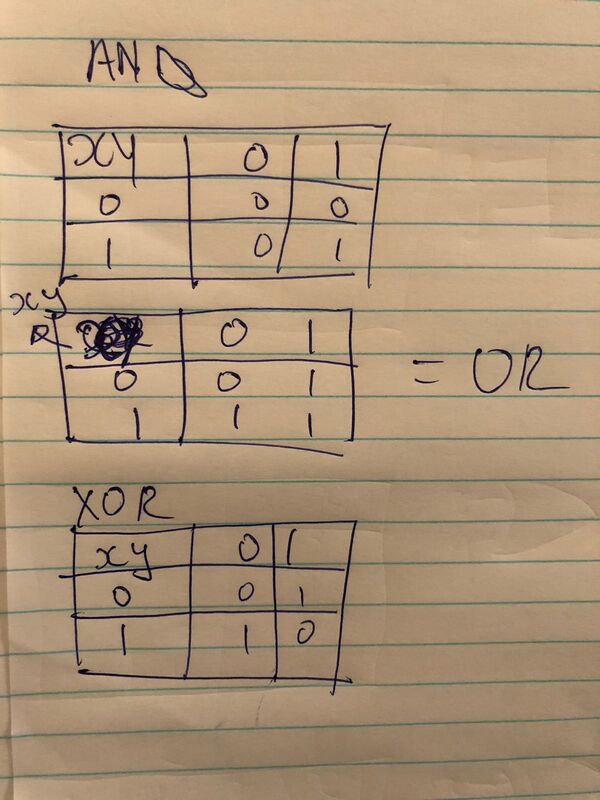 AND
xy 0 1
0 0 0
1 0 1
xy
R 0 1
0 0 1
1 1 1
= OR
XOR
xy 0 1
0 0 1
1 1 0